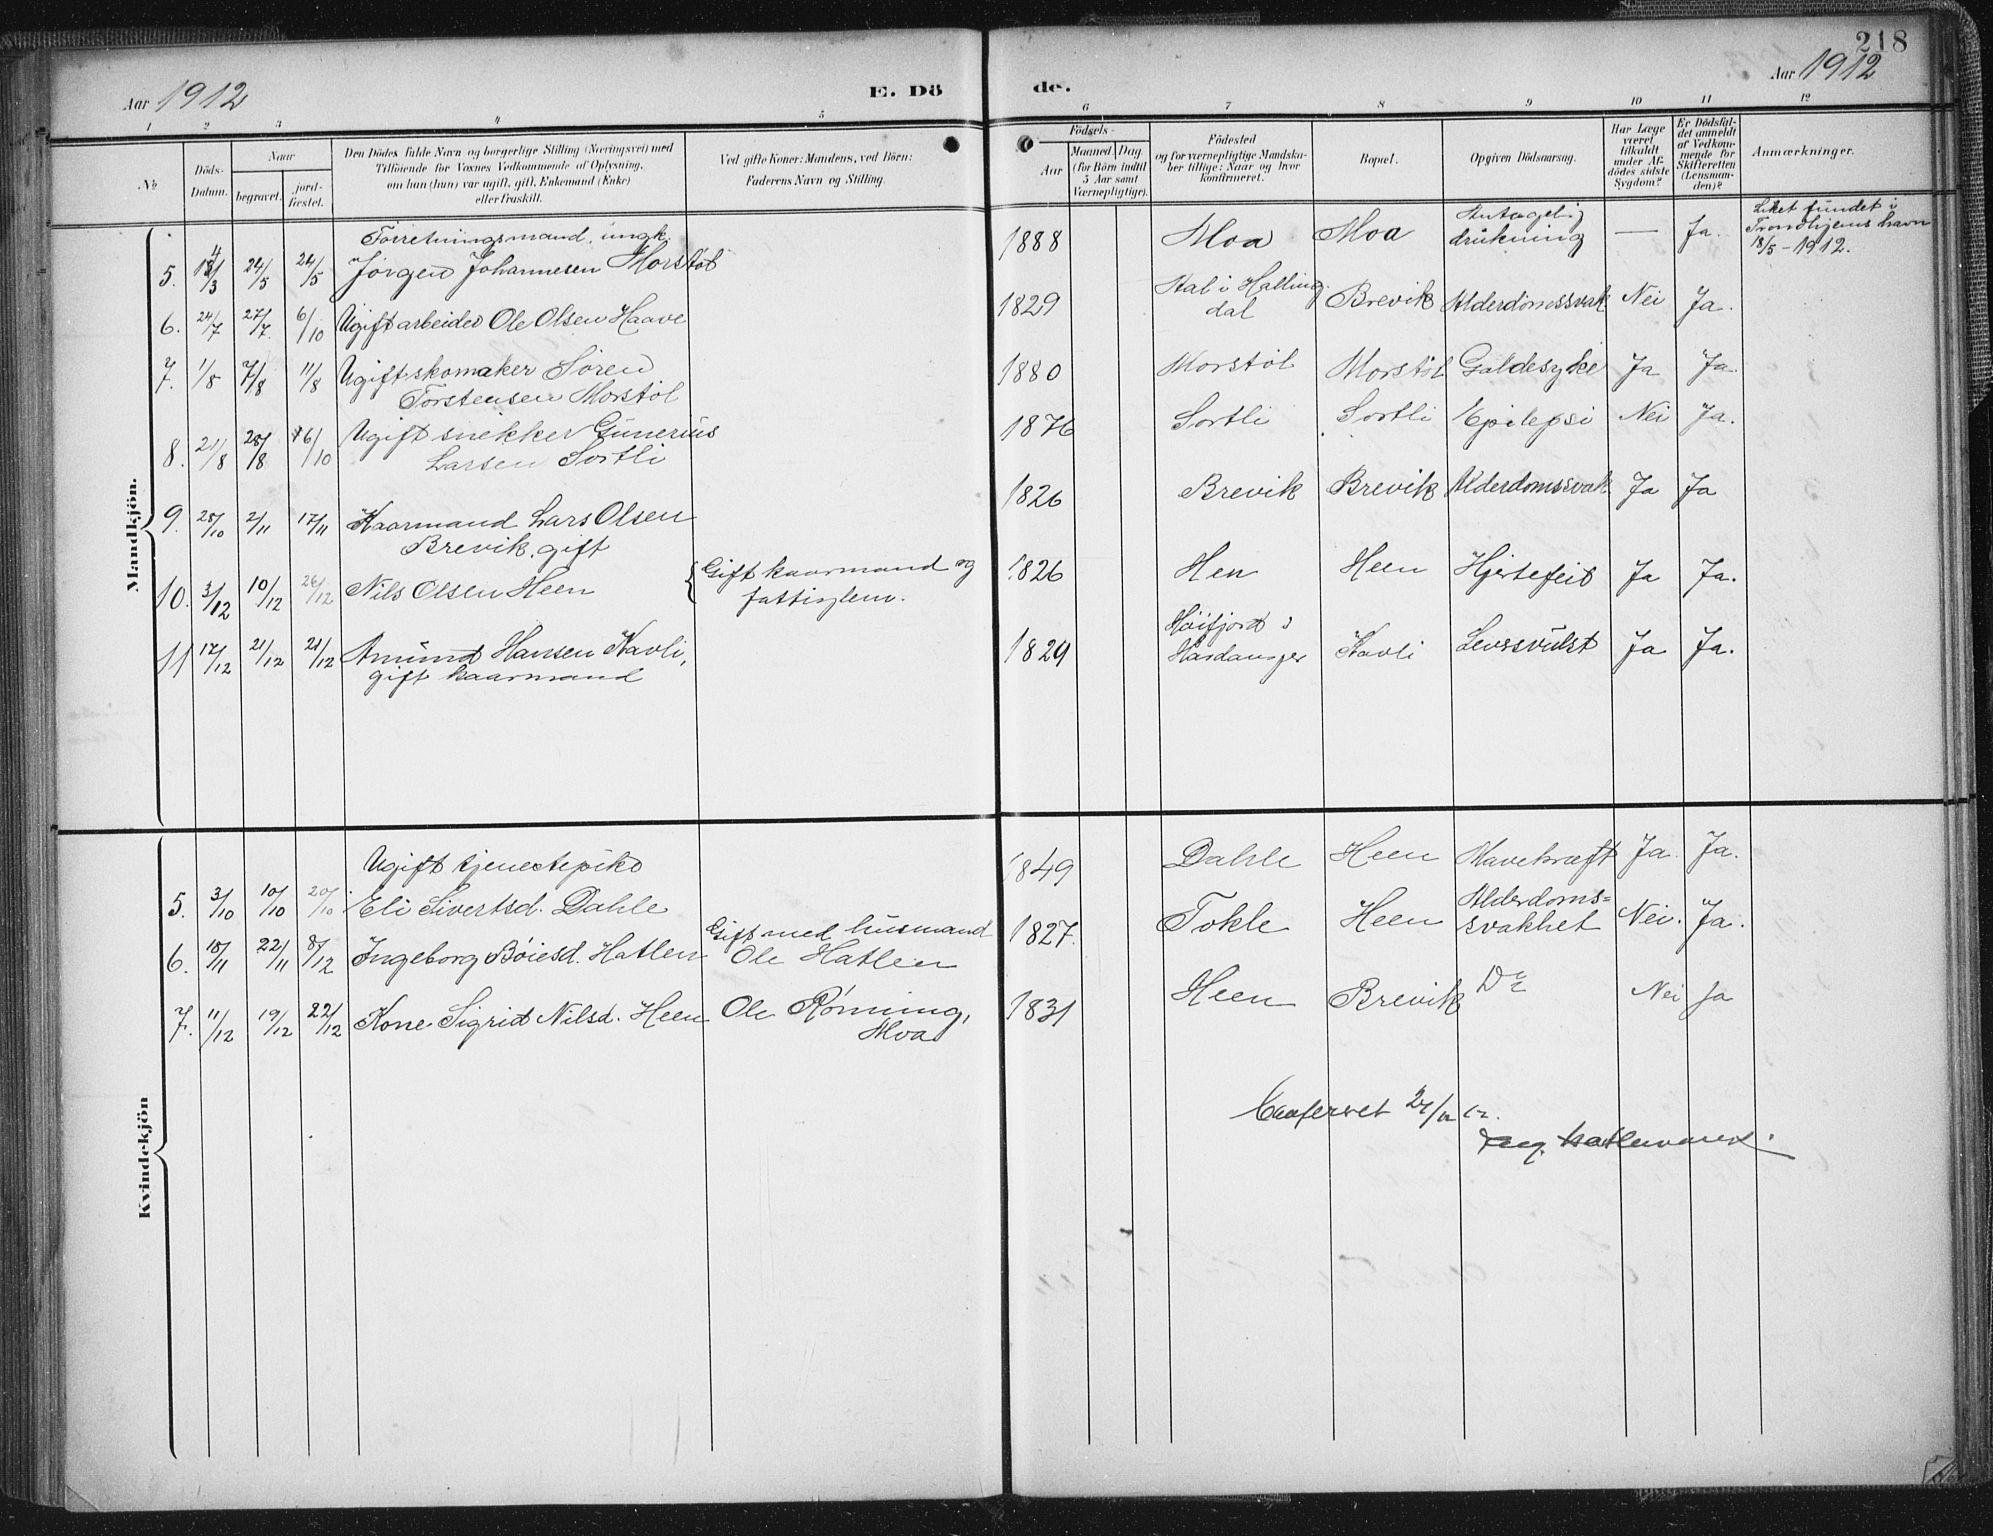 218
Aar 1912 E. Dö
de. Aar 1912
1 2 3 4 5
6 7 8 9 10 11 12
No
Döds-
Datum.
Naar
begravet.
jord-
fæstet.
Den Dödes fulde Navn og borgerlige Stilling (Næringsvei) med
Tilföiende for Voxnes Vedkommende af Oplysning,
om han (hun) var ugift, gift, Enkemand (Enke)
eller fraskilt.
Ved gifte Koner: Mandens, ved Börn:
Faderens Navn og Stilling.
Födsels-
Aar
Maaned Dag
(for Börn indtil
5 Aar samt
Værnepligtige).
Födested
og for værnepligtige Mandska-
ber tillige: Naar og hvor
konfirmeret.
Bopæl.
Opgiven Dödsaarsag.
Har Læge
været
tilkaldt
under Af-
dödes sidste
Sygdom?
Er Dödsfal-
det anmeldt
af Vedkom-
mende for
Skifteretten
(Lensman-
den)?
Anmærkninger.
Mandkjön.
Forretningsmand, ungk.
5. 24/5 24/5 Jørgen Johannesen Morstöl 1888 Moa Moa Antagelig
drukning — Ja. Liket fundet i
Trondhjems havn
18/5 - 1912.
6. 24/7 27/7. 6/10 Ugift arbeider Ole Olsen Haave 1829 Hal i Halling
dal Brevik Alderdomssvak Nei Ja.
7. 1/8 7/8 11/8 Ugift skomaker Søren
Torstensen Morstöl 1880 Morstöl Morstöl Galdesyke Ja Ja.
8. 21/8 28/8 6/10 Ugift snekker Gunerius
Larsen Sortli 1876 Sortli Sortli Epilepsi Nei Ja.
9. 28/10 2/11 17/11 Kaarmand Lars Olsen
Brevik, gift 1826 Brevik Brevik Alderdomssvak Ja Ja
10. 3/12 10/12 26/12 Nils Olsen Heen { Gift kaarmand og
fattiglem. 1826 Hen Heen Hjertefeil Ja Ja.
11 17/12 21/12 21/12 Amund Hansen Kavli,
gift kaarmand 1829 Høifjord i
Hardanger Kavli Levssvulst Ja Ja.
Kvindekjön
Ugift tjenestepike
5. 3/10 10/10 20/10 Eli Sivertsd. Dahle 1849 Dahle Heen Mavekræft Ja. Ja.
6. 18/11 22/11 8/12 Ingeborg Bøiesd. Hatlen Gift med husmand
Ole Hatlen 1827. Tokle Heen Alderdoms=
svakhet Nei. Ja.
7. 11/12 19/12 22/12 Kone Sigrid Nilsd. Heen Ole Rønning,
Moa 1831 Heen Brevik Do Nei Ja
Confereret